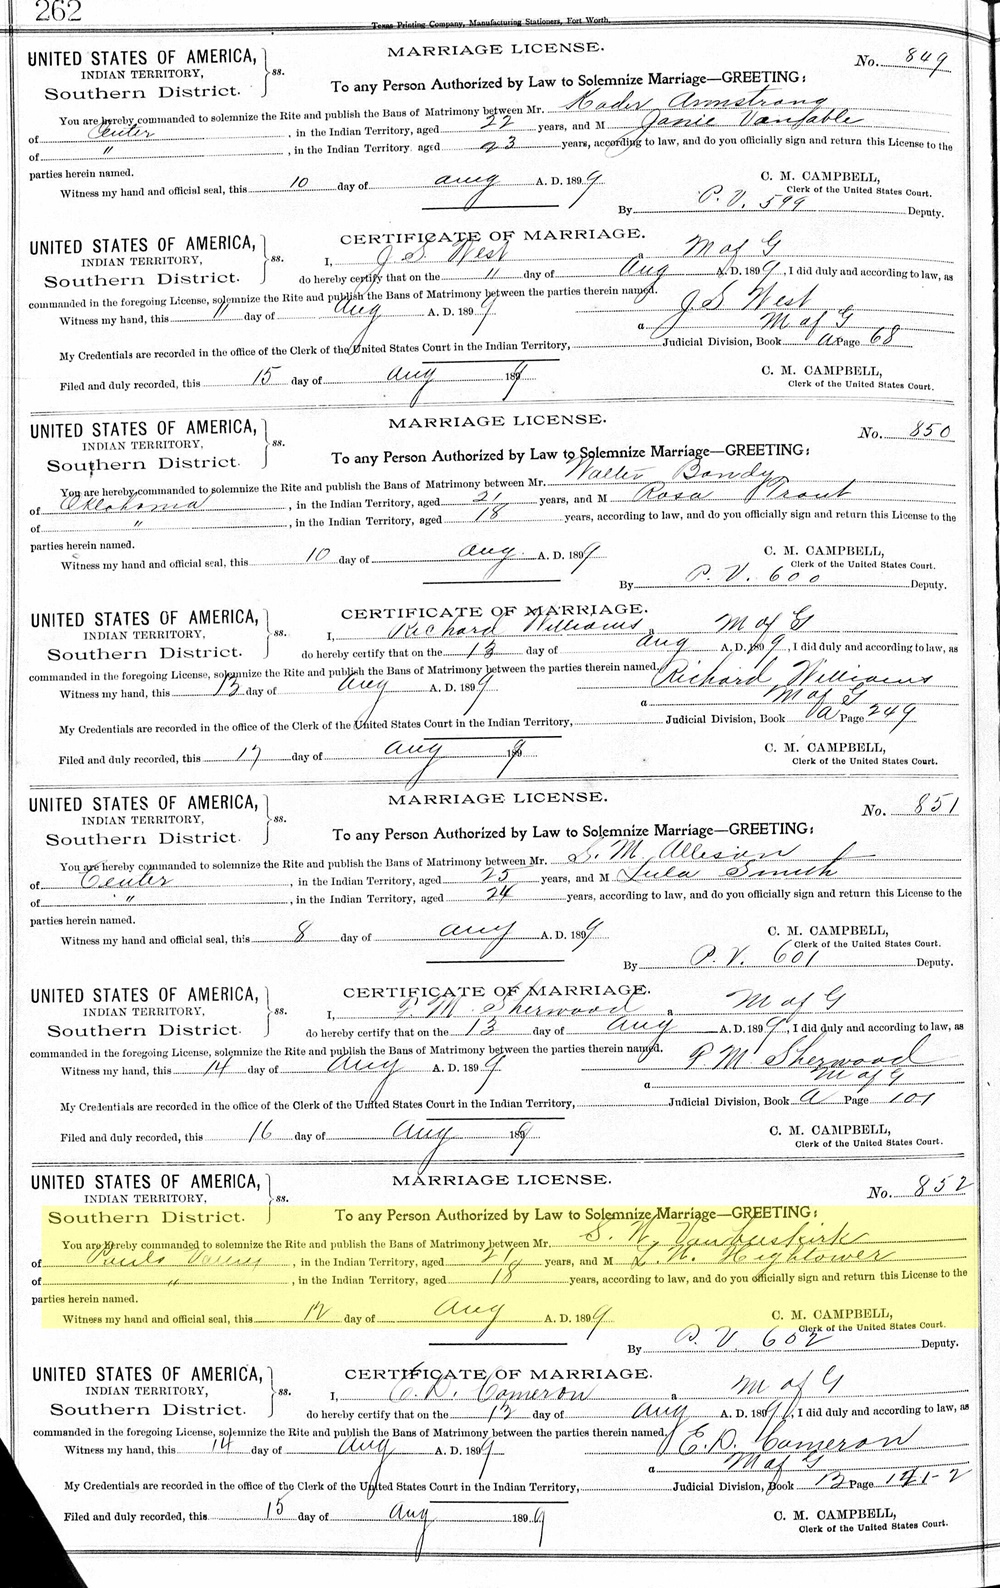 262
Texas Printing Company, Manufacturing Stationers, Fort Worth.
MARRIAGE LICENSE.
No. 849
UNITED STATES OF AMERICA,
INDIAN TERRITORY, ss.
Southern District.
To any Person Authorized by Law to Solemnize Marriage—GREETING:
You are hereby commanded to solemnize the Rite and publish the Bans of Matrimony between Mr. Armstrong
of Center, in the Indian Territory, aged 22 years, and M Janie Vansable
of ", in the Indian Territory, aged 23 years, according to law, and do you officially sign and return this License to the
parties herein named.
Witness my hand and official seal, this 10 day of Aug A. D. 1899
C. M. CAMPBELL,
Clerk of the United States Court.
By P. V. 599 Deputy.
CERTIFICATE OF MARRIAGE.
UNITED STATES OF AMERICA,
INDIAN TERRITORY, ss.
Southern District.
I, J. S. West a M of G
do hereby certify that on the 11 day of Aug A. D. 1899, I did duly and according to law, as
commanded in the foregoing License, solemnize the Rite and publish the Bans of Matrimony between the parties therein named.
Witness my hand, this 11 day of Aug A. D. 1899 J S West
a M of G
My Credentials are recorded in the office of the Clerk of the United States Court in the Indian Territory, Judicial Division, Book A Page 68
Filed and duly recorded, this 15 day of Aug 1899
C. M. CAMPBELL,
Clerk of the United States Court.
MARRIAGE LICENSE.
No. 850
UNITED STATES OF AMERICA,
INDIAN TERRITORY, ss.
Southern District.
To any Person Authorized by Law to Solemnize Marriage—GREETING:
You are hereby commanded to solemnize the Rite and publish the Bans of Matrimony between Mr. Walter Bondy
of Oklahoma, in the Indian Territory, aged 21 years, and M Rosa Trout
of ", in the Indian Territory, aged 18 years, according to law, and do you officially sign and return this License to the
parties herein named.
Witness my hand and official seal, this 10 day of Aug. A. D. 1899
C. M. CAMPBELL,
Clerk of the United States Court.
By P. V. 600 Deputy.
CERTIFICATE OF MARRIAGE.
UNITED STATES OF AMERICA,
INDIAN TERRITORY, ss.
Southern District.
I, Richard Williams a M of G
do hereby certify that on the 13 day of Aug A. D. 1899, I did duly and according to law, as
commanded in the foregoing License, solemnize the Rite and publish the Bans of Matrimony between the parties therein named.
Witness my hand, this 13 day of Aug A. D. 1899 Richard Williams
a M of G
My Credentials are recorded in the office of the Clerk of the United States Court in the Indian Territory, Judicial Division, Book A Page 249
Filed and duly recorded, this 17 day of Aug 1899
C. M. CAMPBELL,
Clerk of the United States Court.
MARRIAGE LICENSE.
No. 851
UNITED STATES OF AMERICA,
INDIAN TERRITORY, ss.
Southern District.
To any Person Authorized by Law to Solemnize Marriage—GREETING:
You are hereby commanded to solemnize the Rite and publish the Bans of Matrimony between Mr. S. M. Allison
of Center, in the Indian Territory, aged 25 years, and M Lula Smith
of ", in the Indian Territory, aged 24 years, according to law, and do you officially sign and return this License to the
parties herein named.
Witness my hand and official seal, this 8 day of Aug A. D. 1899
C. M. CAMPBELL,
Clerk of the United States Court.
By P. V. 601 Deputy.
CERTIFICATE OF MARRIAGE.
UNITED STATES OF AMERICA,
INDIAN TERRITORY, ss.
Southern District.
I, P. M. Sherwood a M of G
do hereby certify that on the 13 day of Aug A. D. 1899, I did duly and according to law, as
commanded in the foregoing License, solemnize the Rite and publish the Bans of Matrimony between the parties therein named.
Witness my hand, this 14 day of Aug A. D. 1899 P. M. Sherwood
a M of G
My Credentials are recorded in the office of the Clerk of the United States Court in the Indian Territory, Judicial Division, Book A Page 101
Filed and duly recorded, this 16 day of Aug 1899
C. M. CAMPBELL,
Clerk of the United States Court.
MARRIAGE LICENSE.
No. 852
UNITED STATES OF AMERICA,
INDIAN TERRITORY, ss.
Southern District.
To any Person Authorized by Law to Solemnize Marriage—GREETING:
You are hereby commanded to solemnize the Rite and publish the Bans of Matrimony between Mr. S. N. Vanbuskirk
of Pauls Valley, in the Indian Territory, aged 21 years, and M L. N. Hightower
of ", in the Indian Territory, aged 18 years, according to law, and do you officially sign and return this License to the
parties herein named.
Witness my hand and official seal, this 12 day of Aug A. D. 1899
C. M. CAMPBELL,
Clerk of the United States Court.
By P. V. 602 Deputy.
CERTIFICATE OF MARRIAGE.
UNITED STATES OF AMERICA,
INDIAN TERRITORY, ss.
Southern District.
I, E. D. Cameron a M of G
do hereby certify that on the 13 day of Aug A. D. 1899, I did duly and according to law, as
commanded in the foregoing License, solemnize the Rite and publish the Bans of Matrimony between the parties therein named.
Witness my hand, this 14 day of Aug A. D. 1899 E. D. Cameron
a M of G
My Credentials are recorded in the office of the Clerk of the United States Court in the Indian Territory, Judicial Division, Book B Page
Filed and duly recorded, this 15 day of Aug 1899
C. M. CAMPBELL,
Clerk of the United States Court.